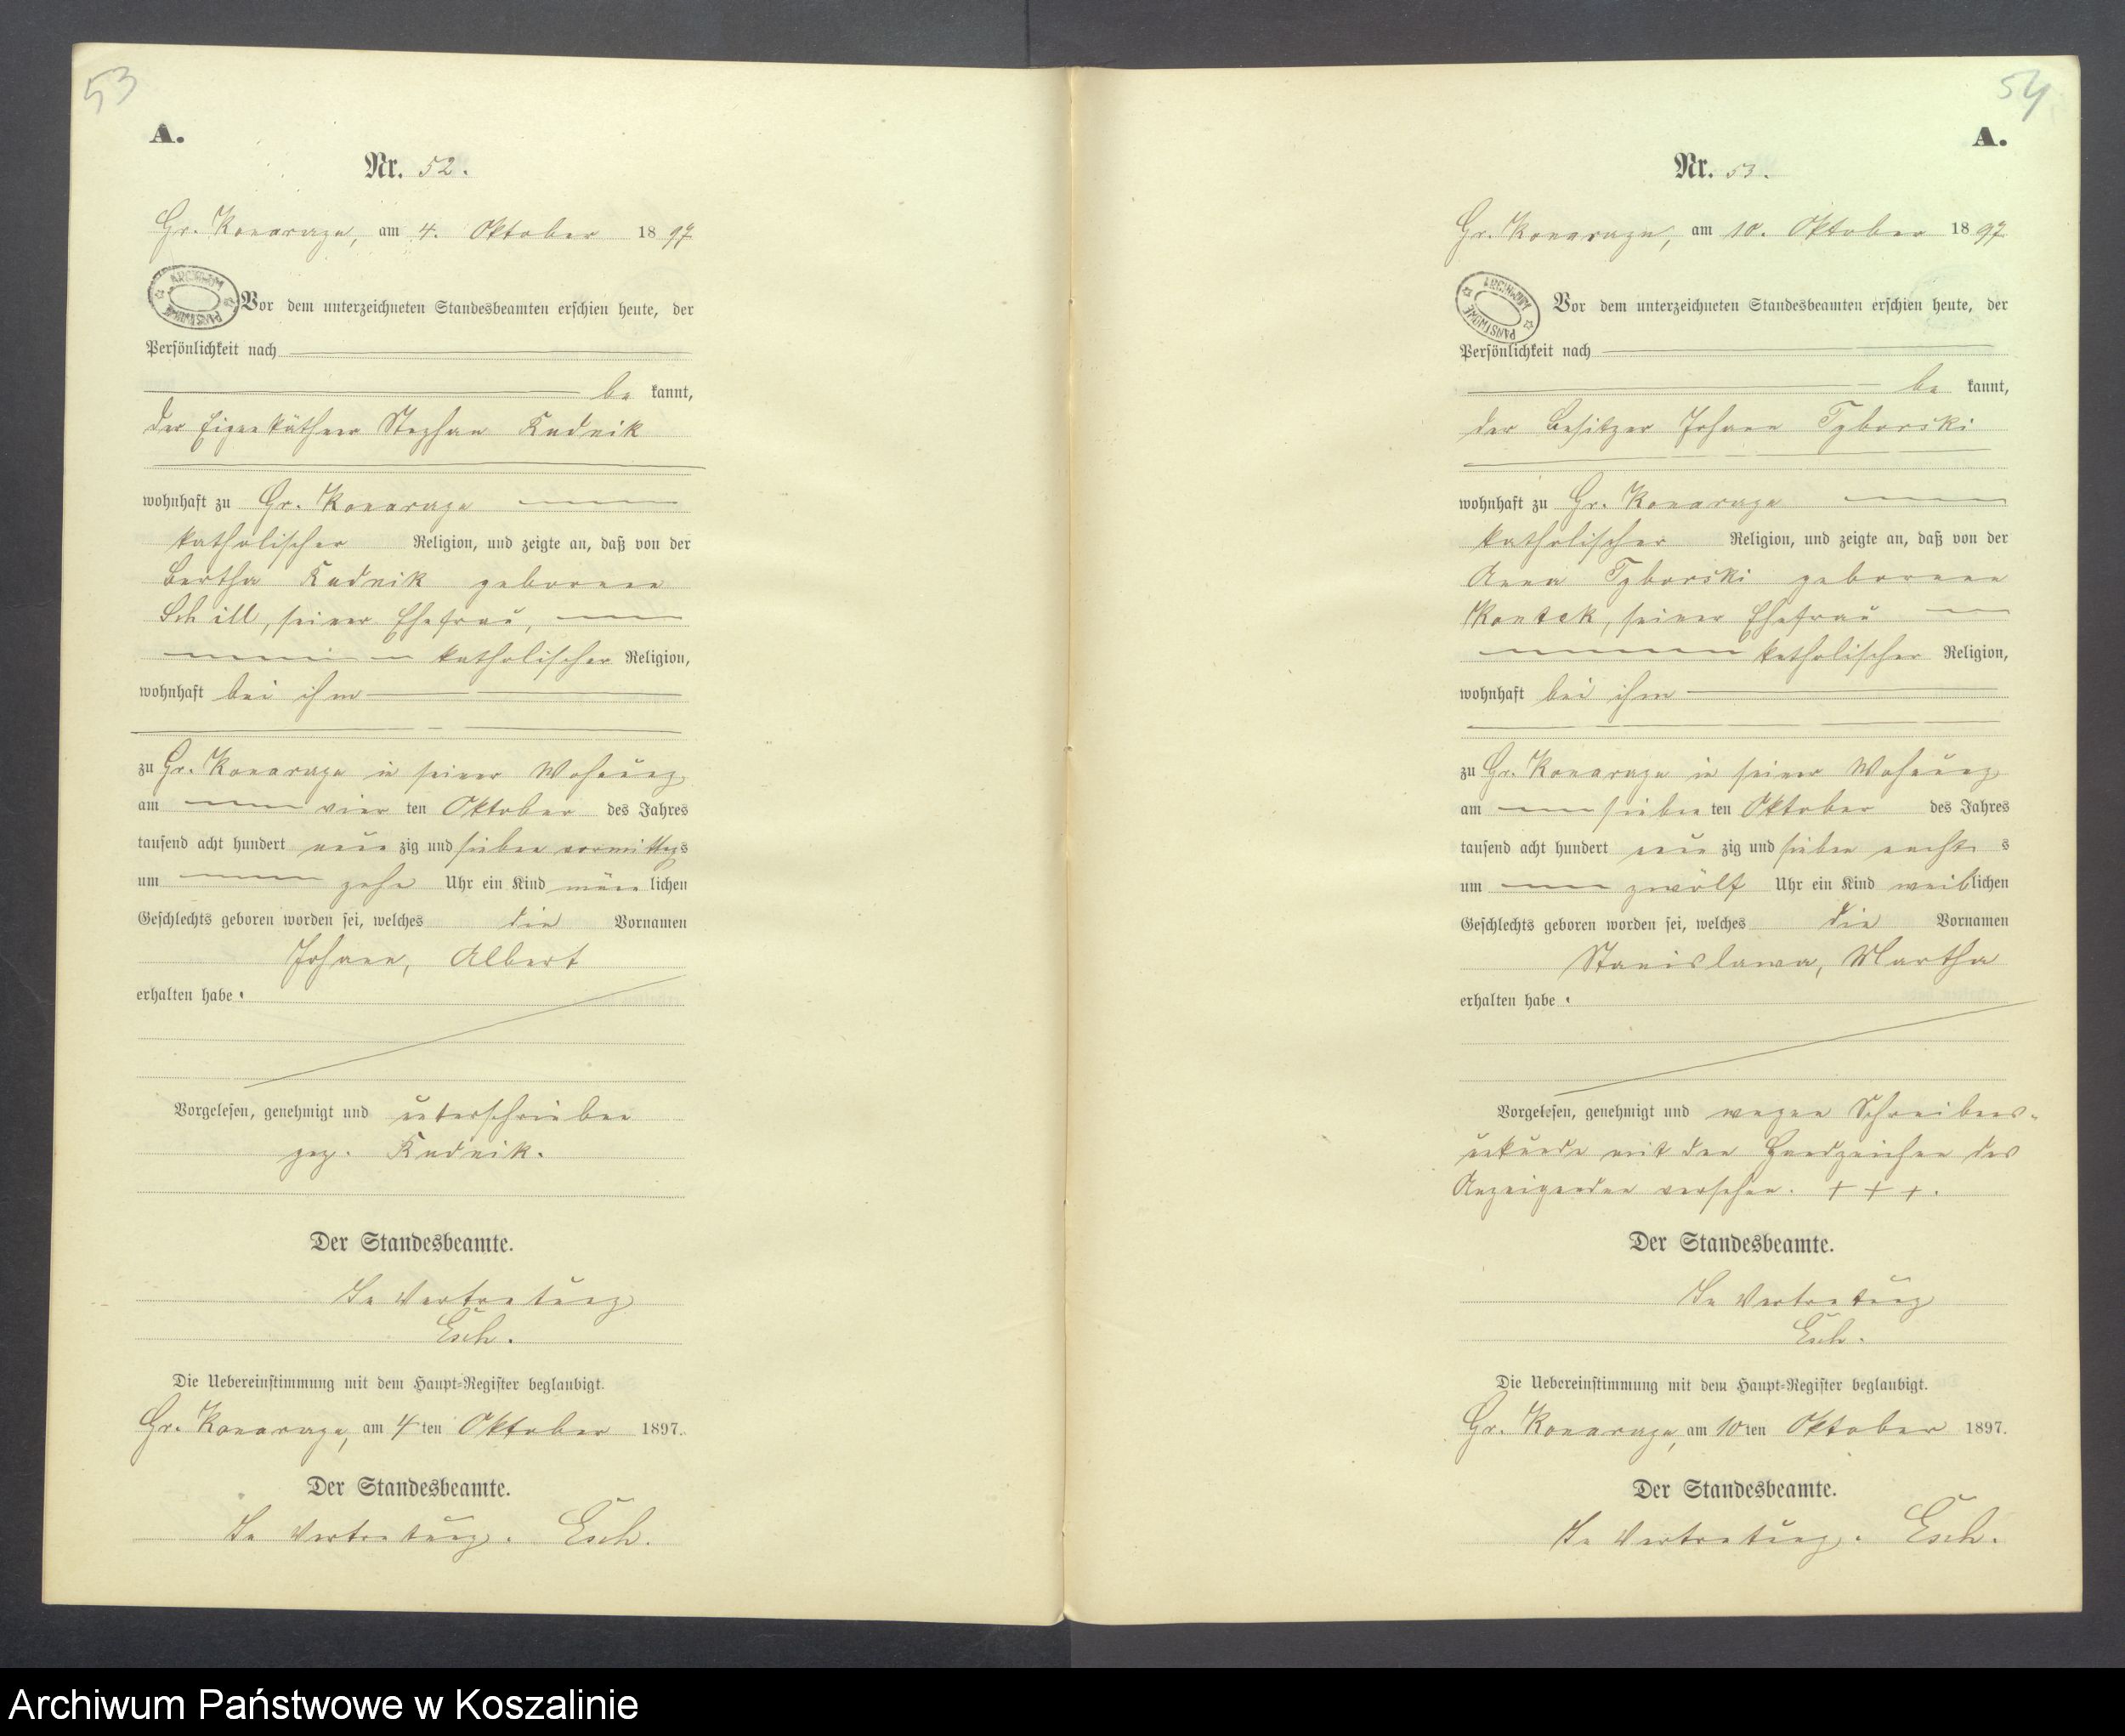 53
A.
Nr. 52.
Gr. Konarzyn, am 4. Oktober 1897
ARCHIWUM PAŃSTWOWE
Vor dem unterzeichneten Standesbeamten erschien heute, der
Persönlichkeit nach
be kannt,
der Eigenkäthner Stephan Rudnik
wohnhaft zu Gr. Konarzyn
katholischer Religion, und zeigte an, daß von der
Bertha Rudnik geborenen
Schill, seiner Ehefrau,
katholischer Religion,
wohnhaft bei ihm
zu Gr. Konarzyn in seiner Wohnung
am vier ten Oktober des Jahres
tausend acht hundert neun zig und sieben vormittags
um zehn Uhr ein Kind männlichen
Geschlechts geboren worden sei, welches die Vornamen
Johann, Albert
erhalten habe.
Vorgelesen, genehmigt und unterschrieben
gez. Rudnik.
Der Standesbeamte.
In Vertretung
Esch.
Die Uebereinstimmung mit dem Haupt-Register beglaubigt.
Gr. Konarzyn, am 4ten Oktober 1897.
Der Standesbeamte.
In Vertretung. Esch.
54
A.
Nr. 53.
Gr. Konarzyn, am 10. Oktober 1897
ARCHIWUM PAŃSTWOWE
Vor dem unterzeichneten Standesbeamten erschien heute, der
Persönlichkeit nach
be kannt,
der Besitzer Johann Tyborski
wohnhaft zu Gr. Konarzyn
katholischer Religion, und zeigte an, daß von der
Anna Tyborski geborenen
Kontek, seiner Ehefrau
katholischer Religion,
wohnhaft bei ihm
zu Gr. Konarzyn in seiner Wohnung
am sieben ten Oktober des Jahres
tausend acht hundert neun zig und sieben nachts
um zwölf Uhr ein Kind weiblichen
Geschlechts geboren worden sei, welches die Vornamen
Stanislawa, Martha
erhalten habe.
Vorgelesen, genehmigt und wegen Schreibens-
unkunde mit den Handzeichen des
Anzeigenden versehen. + + +.
Der Standesbeamte.
In Vertretung
Esch.
Die Uebereinstimmung mit dem Haupt-Register beglaubigt.
Gr. Konarzyn, am 10ten Oktober 1897.
Der Standesbeamte.
In Vertretung. Esch.
Archiwum Państwowe w Koszalinie